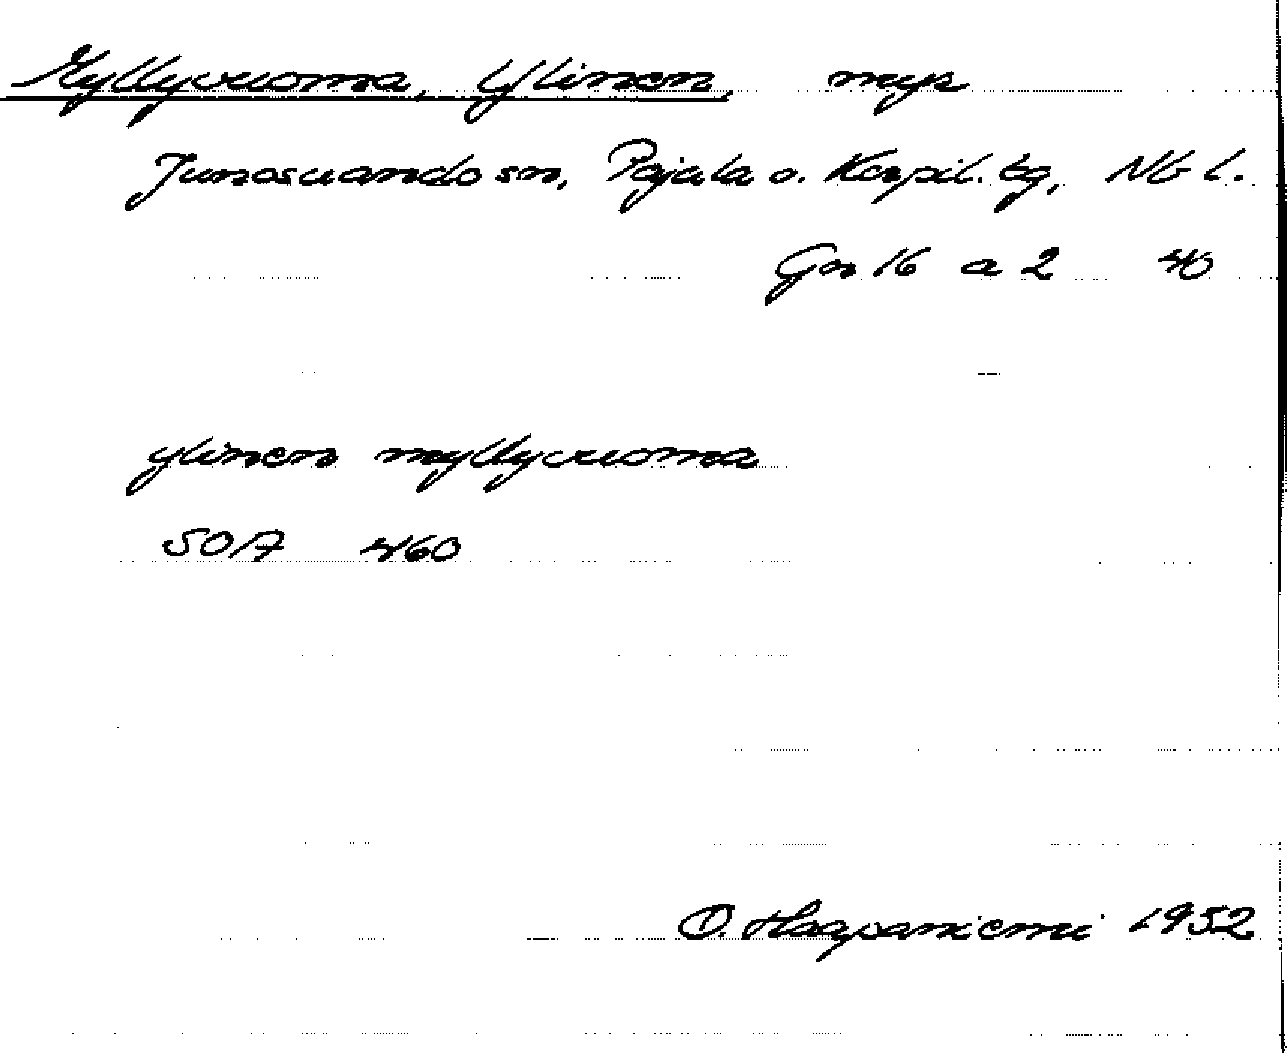 Myllyvuoma, Ylinen, myr
Junosuando sn, Pajala o. Korpil. tg, Nb l.
Gn 16 a 2 40
ylinen myllyvuoma
SOA 460
O. Haapaniemi 1952